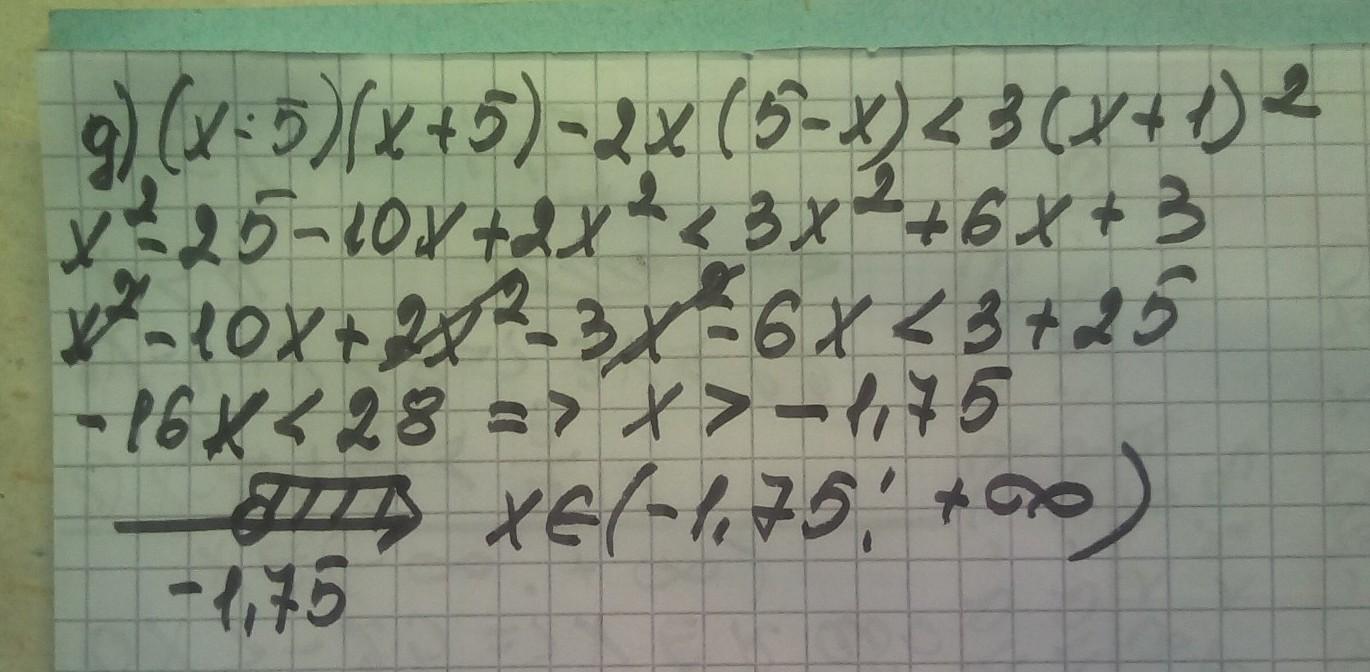 д) (x-5)(x+5)-2x(5-x)<3(x+1)²
x²-25-10x+2x²<3x²+6x+3
x²-10x+2x²-3x²-6x<3+25
-16x<28 => x>-1,75
x∈(-1,75; +∞)
-1,75